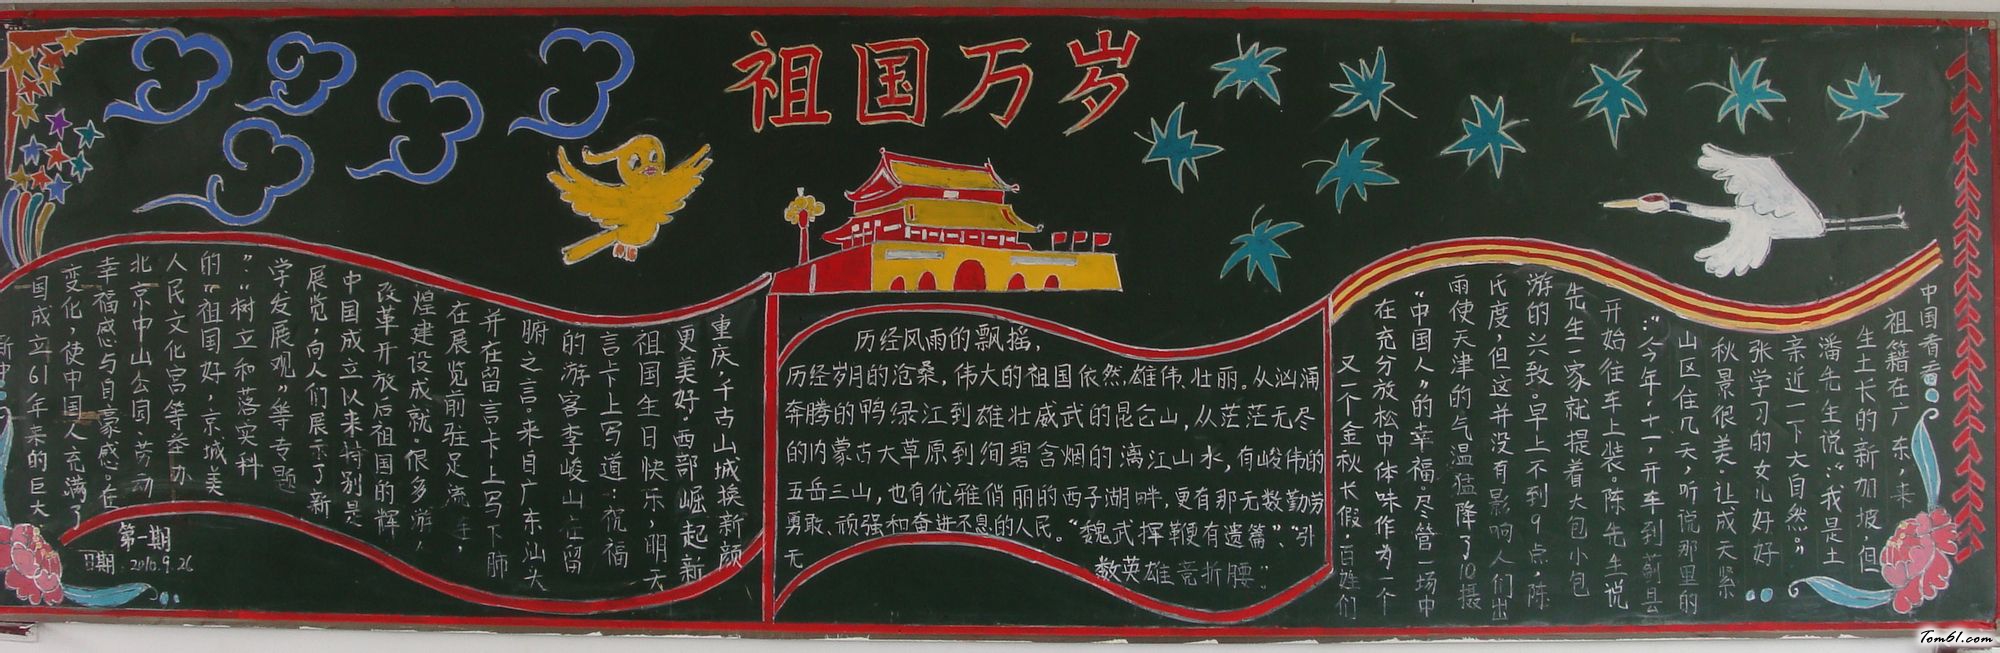 祖国万岁
历经风雨的飘摇,
历经岁月的沧桑,伟大的祖国依然雄伟、壮丽。从汹涌
奔腾的鸭绿江到雄壮威武的昆仑山,从茫茫无尽
的内蒙古大草原到绚碧含烟的漓江山水,有峻伟的
五岳三山,也有优雅俏丽的西子湖畔,更有那无数勤劳
勇敢、顽强和奋进不息的人民。“魏武挥鞭有遗篇”、“引
无
数英雄竞折腰”
中国香
祖籍在广东,来
生土长的新加坡,但
潘先生说:“我是土
亲近一下大自然。”
张学习的女儿好好
秋景很美,让成天紧
山区住几天,听说那里的
:“今年,十一,开车到蓟县
开始往车上装。陈先生说
先生一家就提着大包小包
游的兴致。早上不到9点,陈
氏度,但这并没有影响人们出
雨使天津的气温猛降了10摄
“中国人”的幸福,尽管一场中
在充分放松中体味作为一个
又一个金秋长假,百姓们
重庆,千古山城换新颜
更美好。西部崛起新
祖国生日快乐,明天
言卡上写道:祝福
的游客李峻山在留
腑之言。来自广东汕头
并在留言卡上写下肺
在展览前驻足流连,
煌建设成就。很多游
改革开放后祖国的辉
中国成立以来特别是
展览,向人们展示了新
学发展观”等专题
”:“树立和落实科
的“祖国好,京城美
人民文化宫等举办
北京中山公园、劳动
幸福感与自豪感。在
变化,使中国人充满了
国成立61年来的巨大
新中
第一期
日期:2010.9.26
Tom61.com